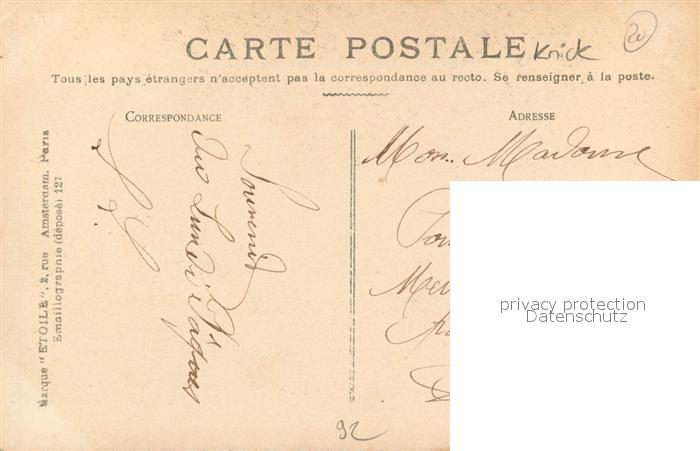 CARTE POSTALE Knick 20
Tous les pays étrangers n'acceptent pas la correspondance au recto. Se renseigner à la poste.
CORRESPONDANCE
ADRESSE
Marque "ETOILE", 2, rue Amsterdam. Paris
Emaillographie (déposé) 127
Souvenir
du Lundi Pâques
Mon. Madame
privacy protection
Datenschutz
92